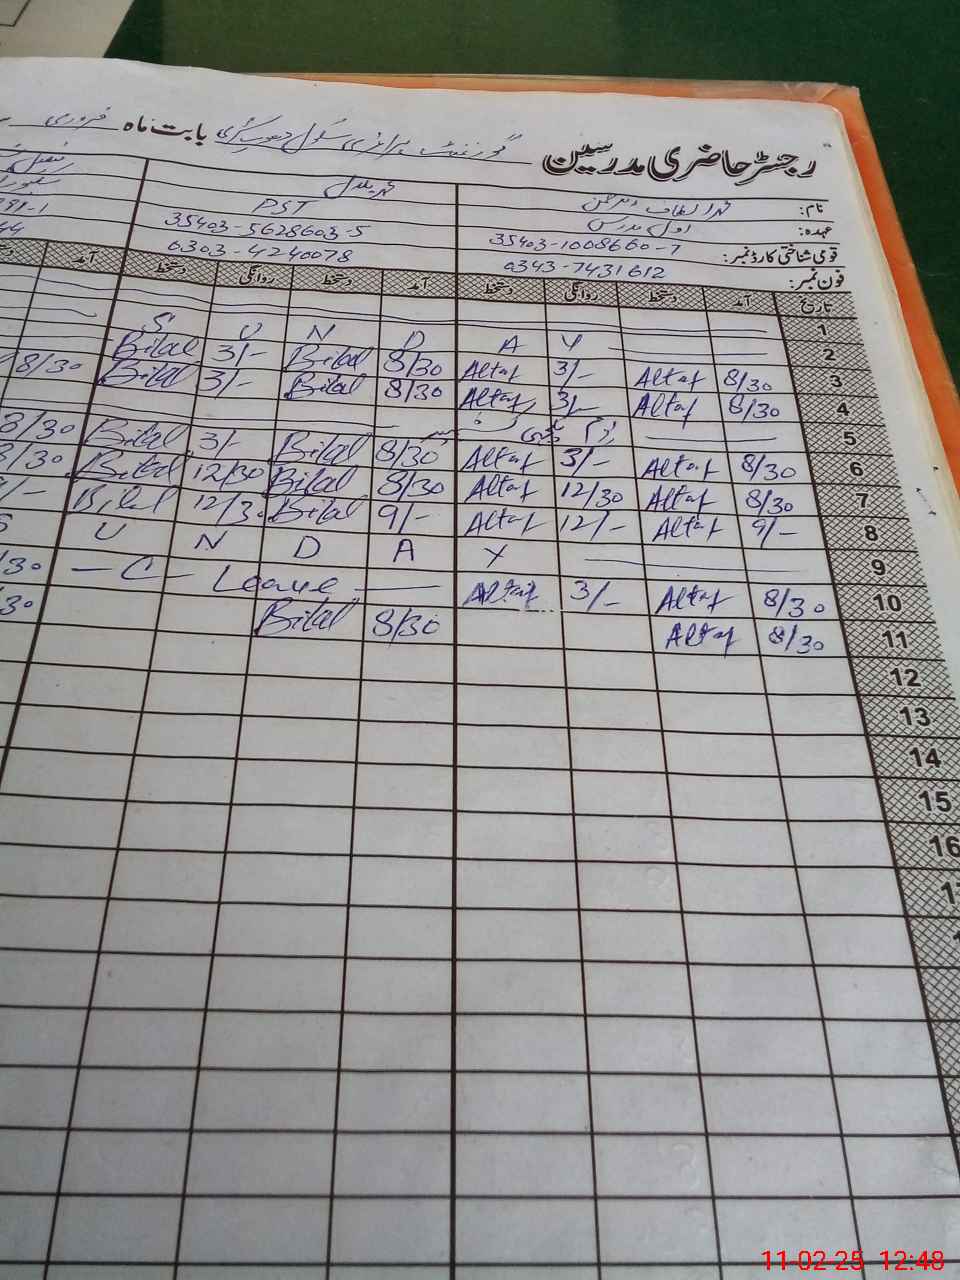 رجسٹر حاضری مدرسین گورنمنٹ پرائمری سکول بابت ماہ فروری
نام: محمد الطاف محمد بلال
عہدہ: اول مدرس PST
قومی شناختی کارڈ نمبر: 35403-1008660-7 35403-5628603-5 91-1
فون نمبر: 0343-7431612 0303-4240078 44
تاریخ آمد دستخط روانگی دستخط آمد دستخط روانگی دستخط آمد
1
2 S U N D A Y
3 8/30 Altaf 3/- Altaf 8/30 Bilal 3/- Bilal 8/30
4 8/30 Altaf 3/- Altaf 8/30 Bilal 3/- Bilal
5
6 8/30 Altaf 3/- Altaf 8/30 Bilal 3/- Bilal 8/30
7 8/30 Altaf 12/30 Altaf 8/30 Bilal 12/30 Bilal 8/30
8 9/- Altaf 12/- Altaf 9/- Bilal 12/30 Bilal /-
9 S U N D A Y
10 8/30 Altaf 3/- Altaf — C — Leave — /30
11 8/30 Altaf 8/30 Bilal /30
12
13
14
15
16
11-02-25 12:48